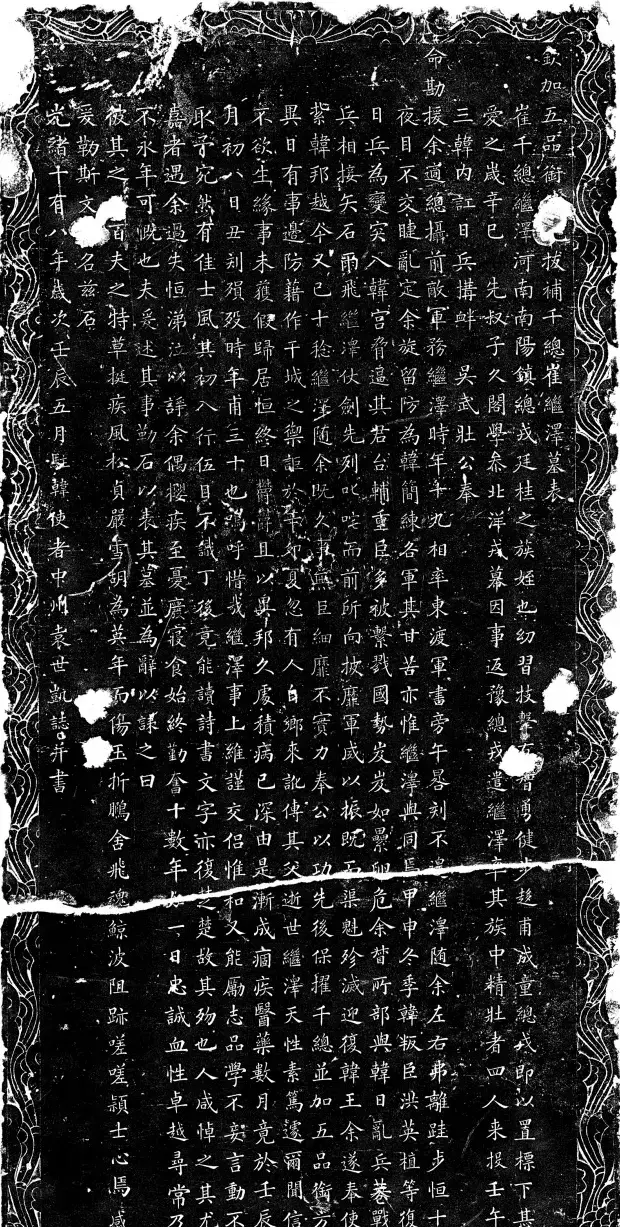 欽加五品銜拔補千總崔繼澤墓表
崔千總繼澤河南南陽鎮總戎廷桂之族姪也幼習技擊勇健步趨甫成童總戎即以置標下甚
愛之歲辛巳先叔子久閣學參北洋戎幕因事返豫總戎遣繼澤率其族中精壯者四人來投壬午
三韓內訌日兵搆衅吳武壯公奉
命勘援余適總攝前敵軍務繼澤時年十九相率東渡軍書旁午晷刻不遑繼澤隨余左右弗離跬步恒十
夜目不交睫亂定余旋留防為韓簡練各軍其甘苦亦惟繼澤與同焉甲申冬季韓叛臣洪英植等復
日兵為變突入韓宮脅逼其君台輔重臣多被繫戮國勢岌岌如纍卵危余督所部與韓日亂兵巷戰
兵相接矢石雨飛繼澤仗劍先列叱咤而前所向披靡軍威以振既而渠魁殄滅迎復韓王余遂奉使
紮韓邦越今又已十稔繼澤隨余既久事無巨細靡不實力奉公以功先後保擢千總並加五品銜方
異日有事邊防藉作干城之禦詎於辛卯夏忽有人自鄉來訛傳其父逝世繼澤天性素篤遽爾聞信
不欲生緣事未獲假歸居恒終日鬱鬱且以異邦久處積病已深由是漸成痼疾醫藥數月竟於壬辰
月初八日丑刻殞歿時年甫三十也嗚呼惜哉繼澤事上維謹交侶惟和又能勵志品學不妄言動不
取予宛然有佳士風其初入行伍目不識丁後竟能讀詩書文字亦復楚楚故其歿也人咸悼之其尤
嘉者遇余過失恒涕泣以諍余偶攖疾至憂廢寢食始終勤奮十數年如一日忠誠血性卓越尋常乃
不永年可慨也夫爰述其事勒石以表其墓並為辭以誄之曰
彼其之百夫之特草挺疾風松貞嚴雪胡為英年而傷玉折鵬舍飛魂鯨波阻跡嗟嗟潁士心焉感
爰勒斯文名茲石
光緒十有八年歲次壬辰五月駐韓使者中州袁世凱誌并書